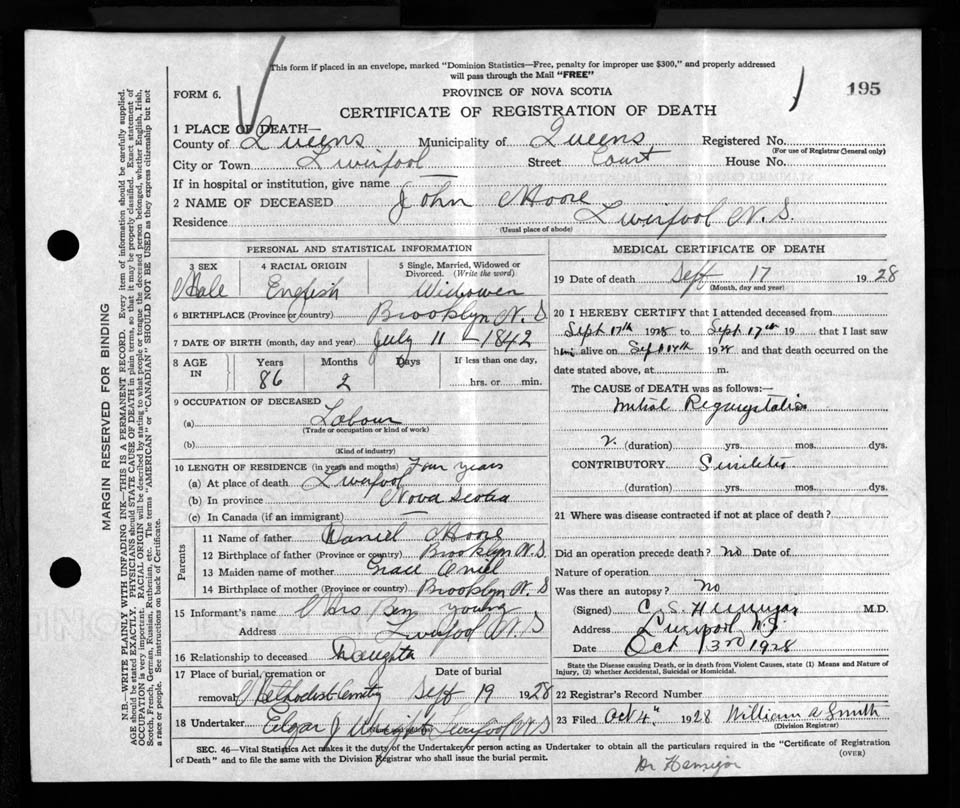 This form if placed in an envelope, marked "Dominion Statistics—Free, penalty for improper use $300," and properly addressed
will pass through the Mail "FREE"
FORM 6.
PROVINCE OF NOVA SCOTIA
195
CERTIFICATE OF REGISTRATION OF DEATH
1 PLACE OF DEATH—
County of Queens Municipality of Queens Registered No.
(For use of Registrar General only)
City or Town Liverpool Street Court House No.
If in hospital or institution, give name —
2 NAME OF DECEASED John Moore
Residence Liverpool N. S.
(Usual place of abode)
PERSONAL AND STATISTICAL INFORMATION
3 SEX 4 RACIAL ORIGIN 5 Single, Married, Widowed or Divorced. (Write the word)
Male English Widower
6 BIRTHPLACE (Province or country) Brooklyn N. S
7 DATE OF BIRTH (month, day and year) July 11 – 1842
8 AGE IN Years Months Days If less than one day,
86 2 hrs. or min.
9 OCCUPATION OF DECEASED
(a) Labour
(Trade or occupation or kind of work)
(b)
(Kind of industry)
10 LENGTH OF RESIDENCE (in years and months) Four years
(a) At place of death Liverpool
(b) In province Nova Scotia
(c) In Canada (if an immigrant) —
Parents
11 Name of father Daniel Moore
12 Birthplace of father (Province or country) Brooklyn N. S
13 Maiden name of mother Grace
14 Birthplace of mother (Province or country) Brooklyn N. S
15 Informant's name Mrs Benj Young
Address Liverpool N S
16 Relationship to deceased Daughter
17 Place of burial, cremation or Date of burial
removal Methodist Cemetry Sept 19 1928
18 Undertaker Edgar J Wright Liverpool N S
MEDICAL CERTIFICATE OF DEATH
19 Date of death Sept 17 1928
(Month, day and year)
20 I HEREBY CERTIFY that I attended deceased from
Sept 17th 1928 to Sept 17th 19 that I last saw
him alive on Sept 14th 1928 and that death occurred on the
date stated above, at m.
The CAUSE OF DEATH was as follows:—
Mitral Regurgitation
(duration) yrs. mos. dys.
CONTRIBUTORY
(duration) yrs. mos. dys.
21 Where was disease contracted if not at place of death?
Did an operation precede death? No Date of
Nature of operation
Was there an autopsy? No
(Signed) C. S. Hennigar M.D.
Address Liverpool N.S.
Date Oct 3rd 1928
State the Disease causing Death, or in death from Violent Causes, state (1) Means and Nature of
Injury, (2) whether Accidental, Suicidal or Homicidal.
22 Registrar's Record Number
23 Filed Oct 4th 1928 William A Smith
(Division Registrar)
SEC. 46—Vital Statistics Act makes it the duty of the Undertaker or person acting as Undertaker to obtain all the particulars required in the "Certificate of Registration
of Death" and to file the same with the Division Registrar who shall issue the burial permit.
(OVER)
Dr Hennigar
MARGIN RESERVED FOR BINDING
N.B.—WRITE PLAINLY WITH UNFADING INK—THIS IS A PERMANENT RECORD. Every item of information should be carefully supplied.
AGE should be stated EXACTLY. PHYSICIANS should STATE CAUSE OF DEATH in plain terms, so that it may be properly classified. Exact statement of
OCCUPATION is very important. RACIAL ORIGIN will be described by stating to what people or tongue the deceased person belonged, whether English, Irish,
Scotch, French, German, Russian, Ruthenian, etc. The terms "AMERICAN" or "CANADIAN" SHOULD NOT BE USED as they express citizenship but not
a race or people. See instructions on back of Certificate.